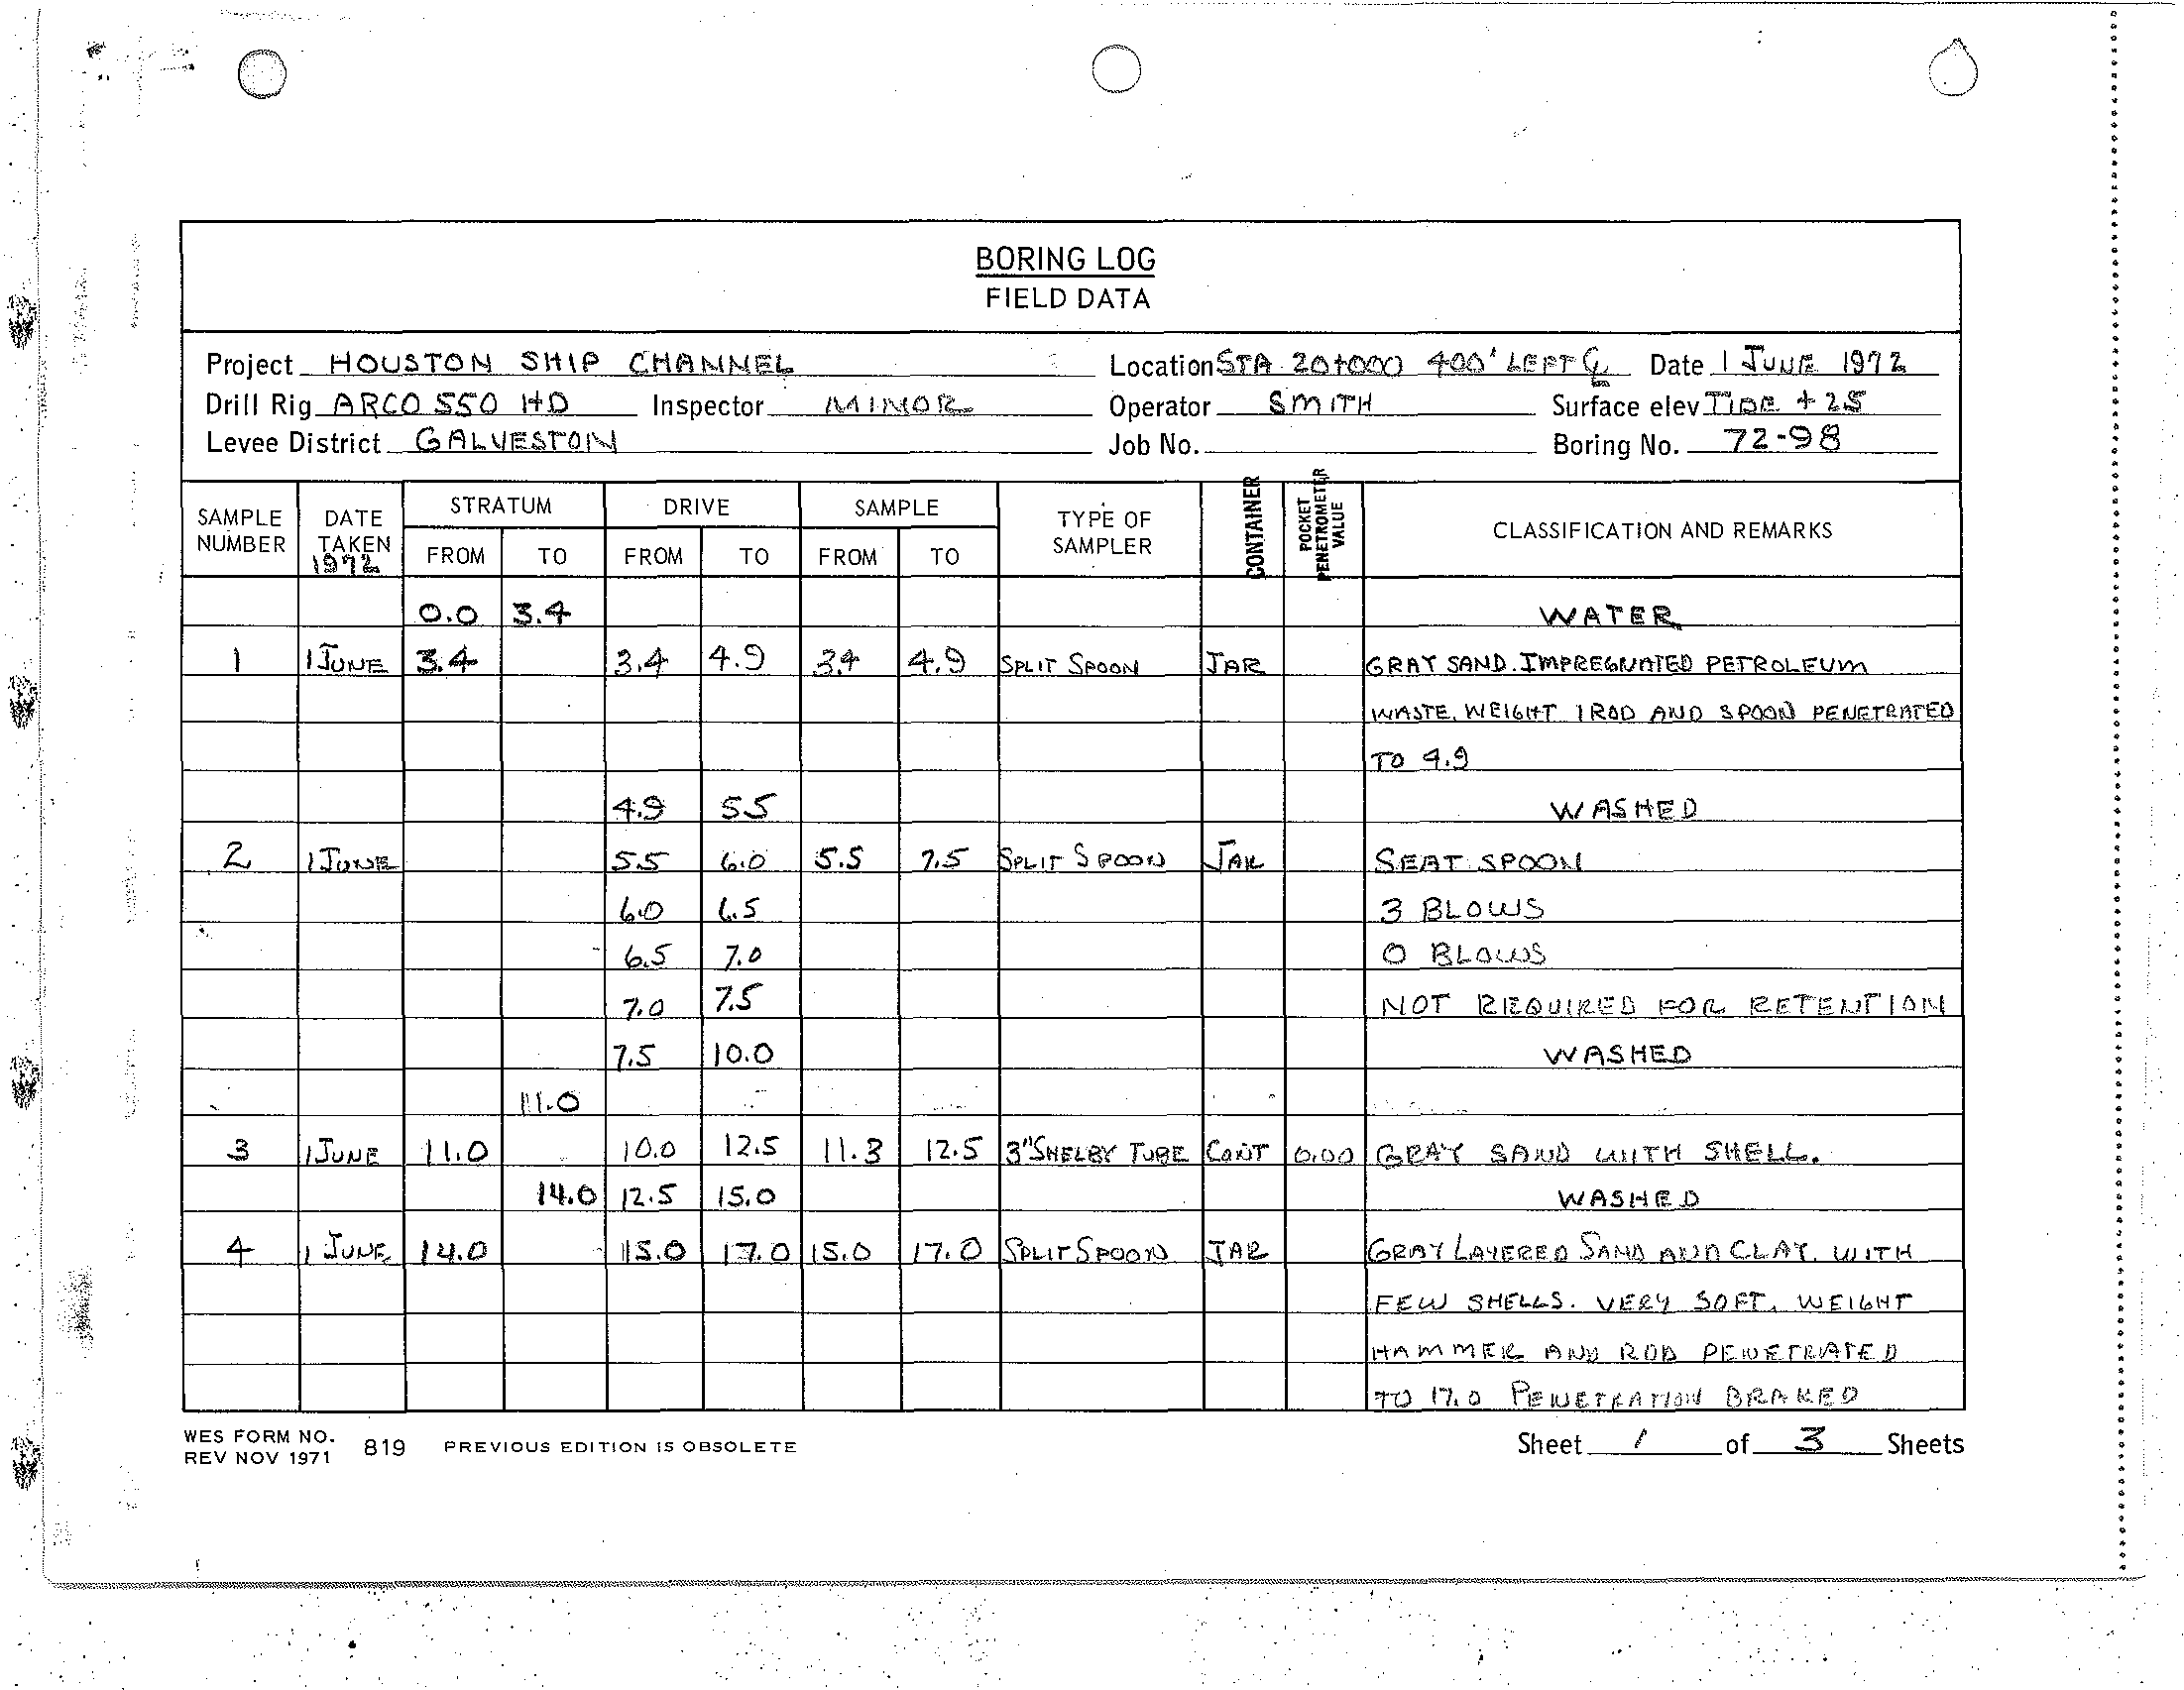 BORING LOG
FIELD DATA
Project HOUSTON SHIP CHANNEL Location STA 20+000 400' LEFT ℄ Date 1 JUNE 1972
Drill Rig ARCO 550 HD Inspector MINOR Operator SMITH Surface elev TIDE + 25
Levee District GALVESTON Job No. Boring No. 72-98
SAMPLE NUMBER DATE TAKEN 1972 STRATUM FROM TO DRIVE FROM TO SAMPLE FROM TO TYPE OF SAMPLER CONTAINER POCKET PENETROMETER VALUE CLASSIFICATION AND REMARKS
0.0 3.4 WATER
1 1 JUNE 3.4 3.4 4.9 3.4 4.9 SPLIT SPOON JAR GRAY SAND. IMPREGNATED PETROLEUM
WASTE. WEIGHT 1 ROD AND SPOON PENETRATED
TO 4.9
4.9 5.5 WASHED
2 1 JUNE 5.5 6.0 5.5 7.5 SPLIT SPOON JAR SEAT SPOON
6.0 6.5 3 BLOWS
6.5 7.0 0 BLOWS
7.0 7.5 NOT REQUIRED FOR RETENTION
7.5 10.0 WASHED
11.0
3 1 JUNE 11.0 10.0 12.5 11.3 12.5 3" SHELBY TUBE CONT 0.00 GRAY SAND WITH SHELL.
14.0 12.5 15.0 WASHED
4 1 JUNE 14.0 15.0 17.0 15.0 17.0 SPLIT SPOON JAR GRAY LAYERED SAND AND CLAY. WITH
FEW SHELLS. VERY SOFT. WEIGHT
HAMMER AND ROD PENETRATED
TO 17.0 PENETRATION BRAKED
WES FORM NO. 819 PREVIOUS EDITION IS OBSOLETE Sheet 1 of 3 Sheets
REV NOV 1971